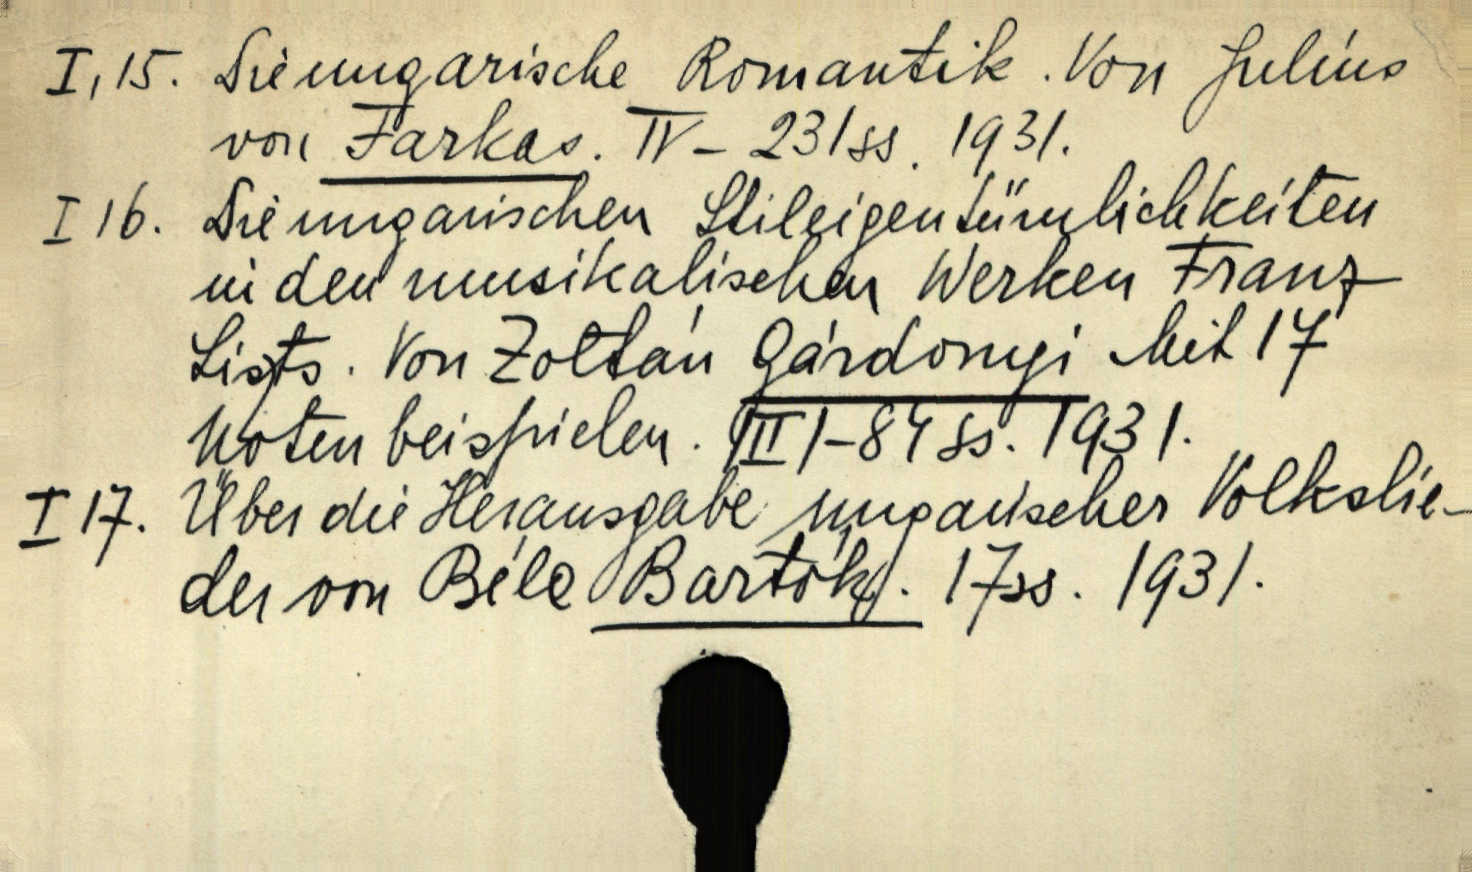 I, 15. Die ungarische Romantik. Von Julius
von Farkas. IV – 231 ss. 1931.
I 16. Die ungarischen Stileigentümlichkeiten
in den musikalischen Werken Franz
Liszts. Von Zoltán Gárdonyi Mit 17
Notenbeispielen. (III) – 84 ss. 1931.
I 17. Über die Herausgabe ungarischer Volkslie-
der von Béla Bartók. 17 ss. 1931.